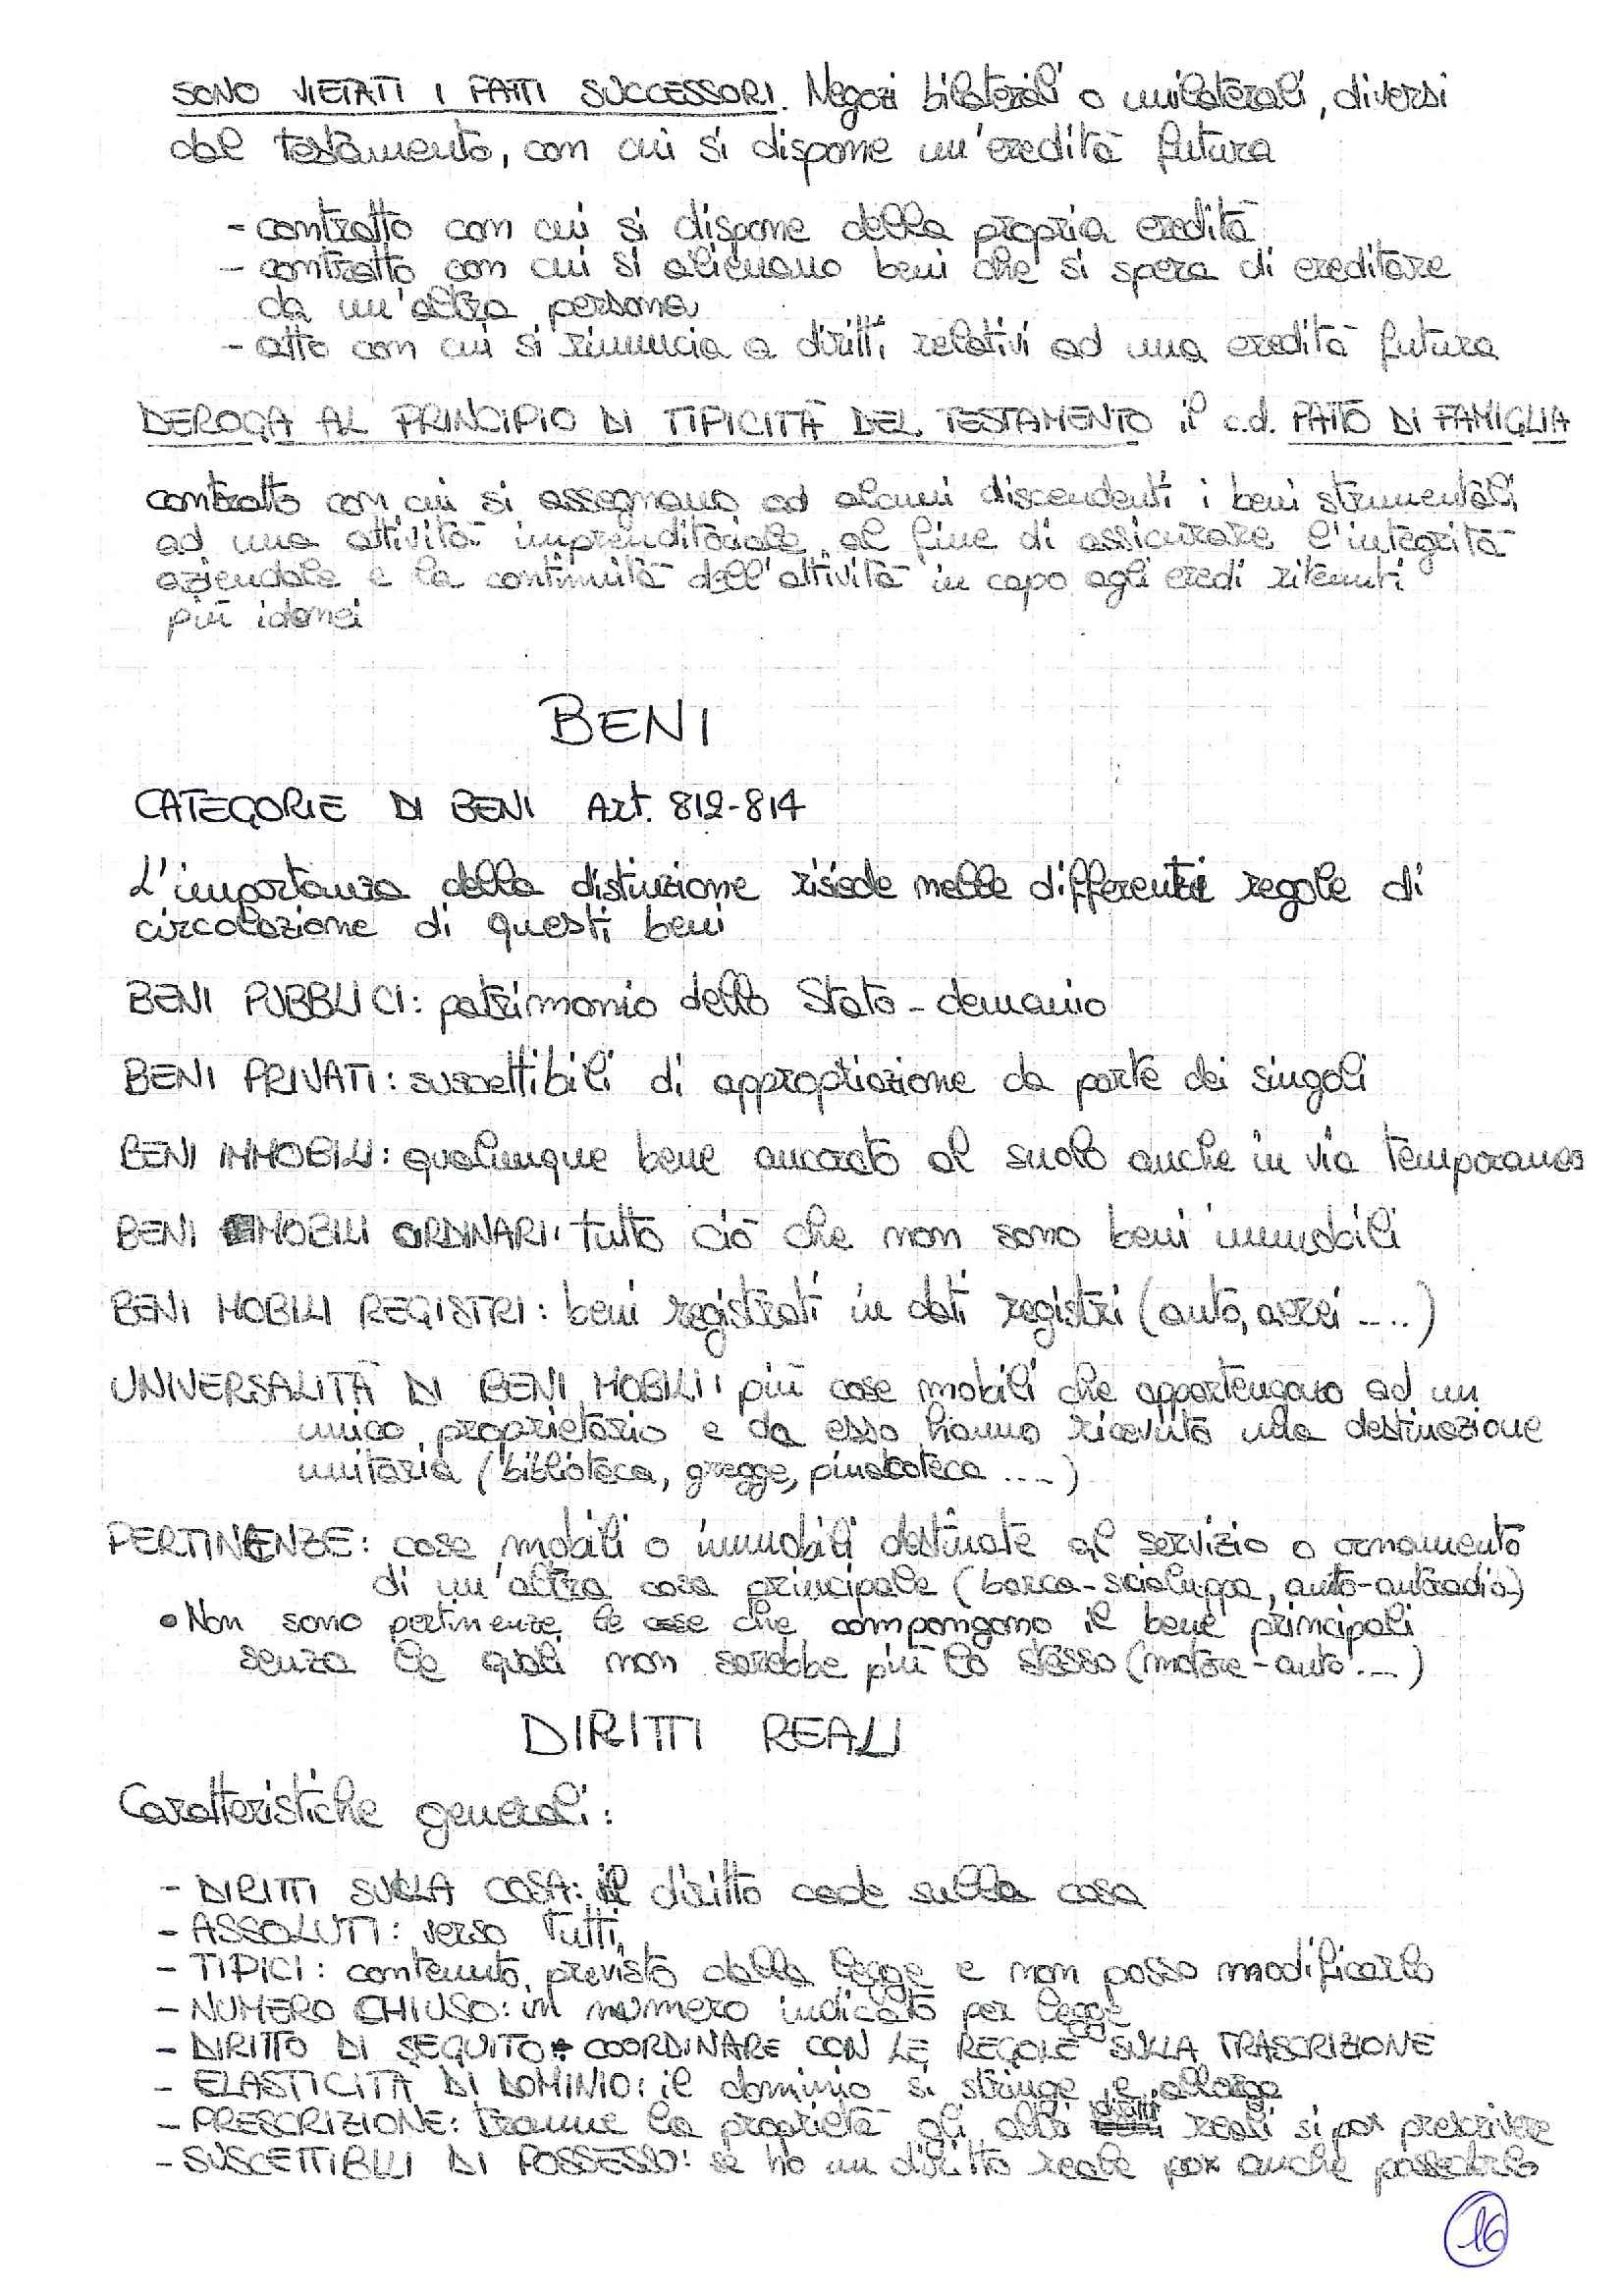 SONO VIETATI I PATTI SUCCESSORI. Negozi bilaterali o unilaterali, diversi
dal testamento, con cui si dispone un'eredità futura
- contratto con cui si dispone della propria eredità
- contratto con cui si alienano beni che si spera di ereditare
da un'altra persona
- atto con cui si rinuncia a diritti relativi ad una eredità futura
DEROGA AL PRINCIPIO DI TIPICITÀ DEL TESTAMENTO il c.d. PATTO DI FAMIGLIA
contratto con cui si assegnano ad alcuni discendenti i beni strumentali
ad una attività imprenditoriale, al fine di assicurare l'integrità
aziendale e la continuità dell'attività in capo agli eredi ritenuti
più idonei
BENI
CATEGORIE DI BENI Art. 812-814
L'importanza della distinzione risiede nelle differenti regole di
circolazione di questi beni
BENI PUBBLICI: patrimonio dello Stato - demanio
BENI PRIVATI: suscettibili di appropriazione da parte dei singoli
BENI IMMOBILI: qualunque bene ancorato al suolo anche in via temporanea
BENI MOBILI ORDINARI: tutto ciò che non sono beni immobili
BENI MOBILI REGISTRI: beni registrati in dati registri (auto, aerei ....)
UNIVERSALITÀ DI BENI MOBILI: più cose mobili che appartengano ad un
unico proprietario e da esso hanno ricevuto una destinazione
unitaria (biblioteca, gregge, pinacoteca ....)
PERTINENZE: cose mobili o immobili destinate al servizio o ornamento
di un'altra cosa principale (barca-scialuppa, auto-autoradio)
• Non sono pertinenze le cose che compongono il bene principali
senza le quali non sarebbe più lo stesso (motore-auto ...)
DIRITTI REALI
Caratteristiche generali:
- DIRITTI SULLA COSA: il diritto cade sulla cosa
- ASSOLUTI: verso tutti
- TIPICI: contenuto previsto dalla legge e non posso modificarlo
- NUMERO CHIUSO: in numero indicato per legge
- DIRITTO DI SEGUITO COORDINARE CON LE REGOLE SULLA TRASCRIZIONE
- ELASTICITÀ DI DOMINIO: il dominio si stringe e allarga
- PRESCRIZIONE: tranne la proprietà gli altri diritti reali si pox prescrivere
- SUSCETTIBILI DI POSSESSO: se ho un diritto reale pox anche possederlo
16